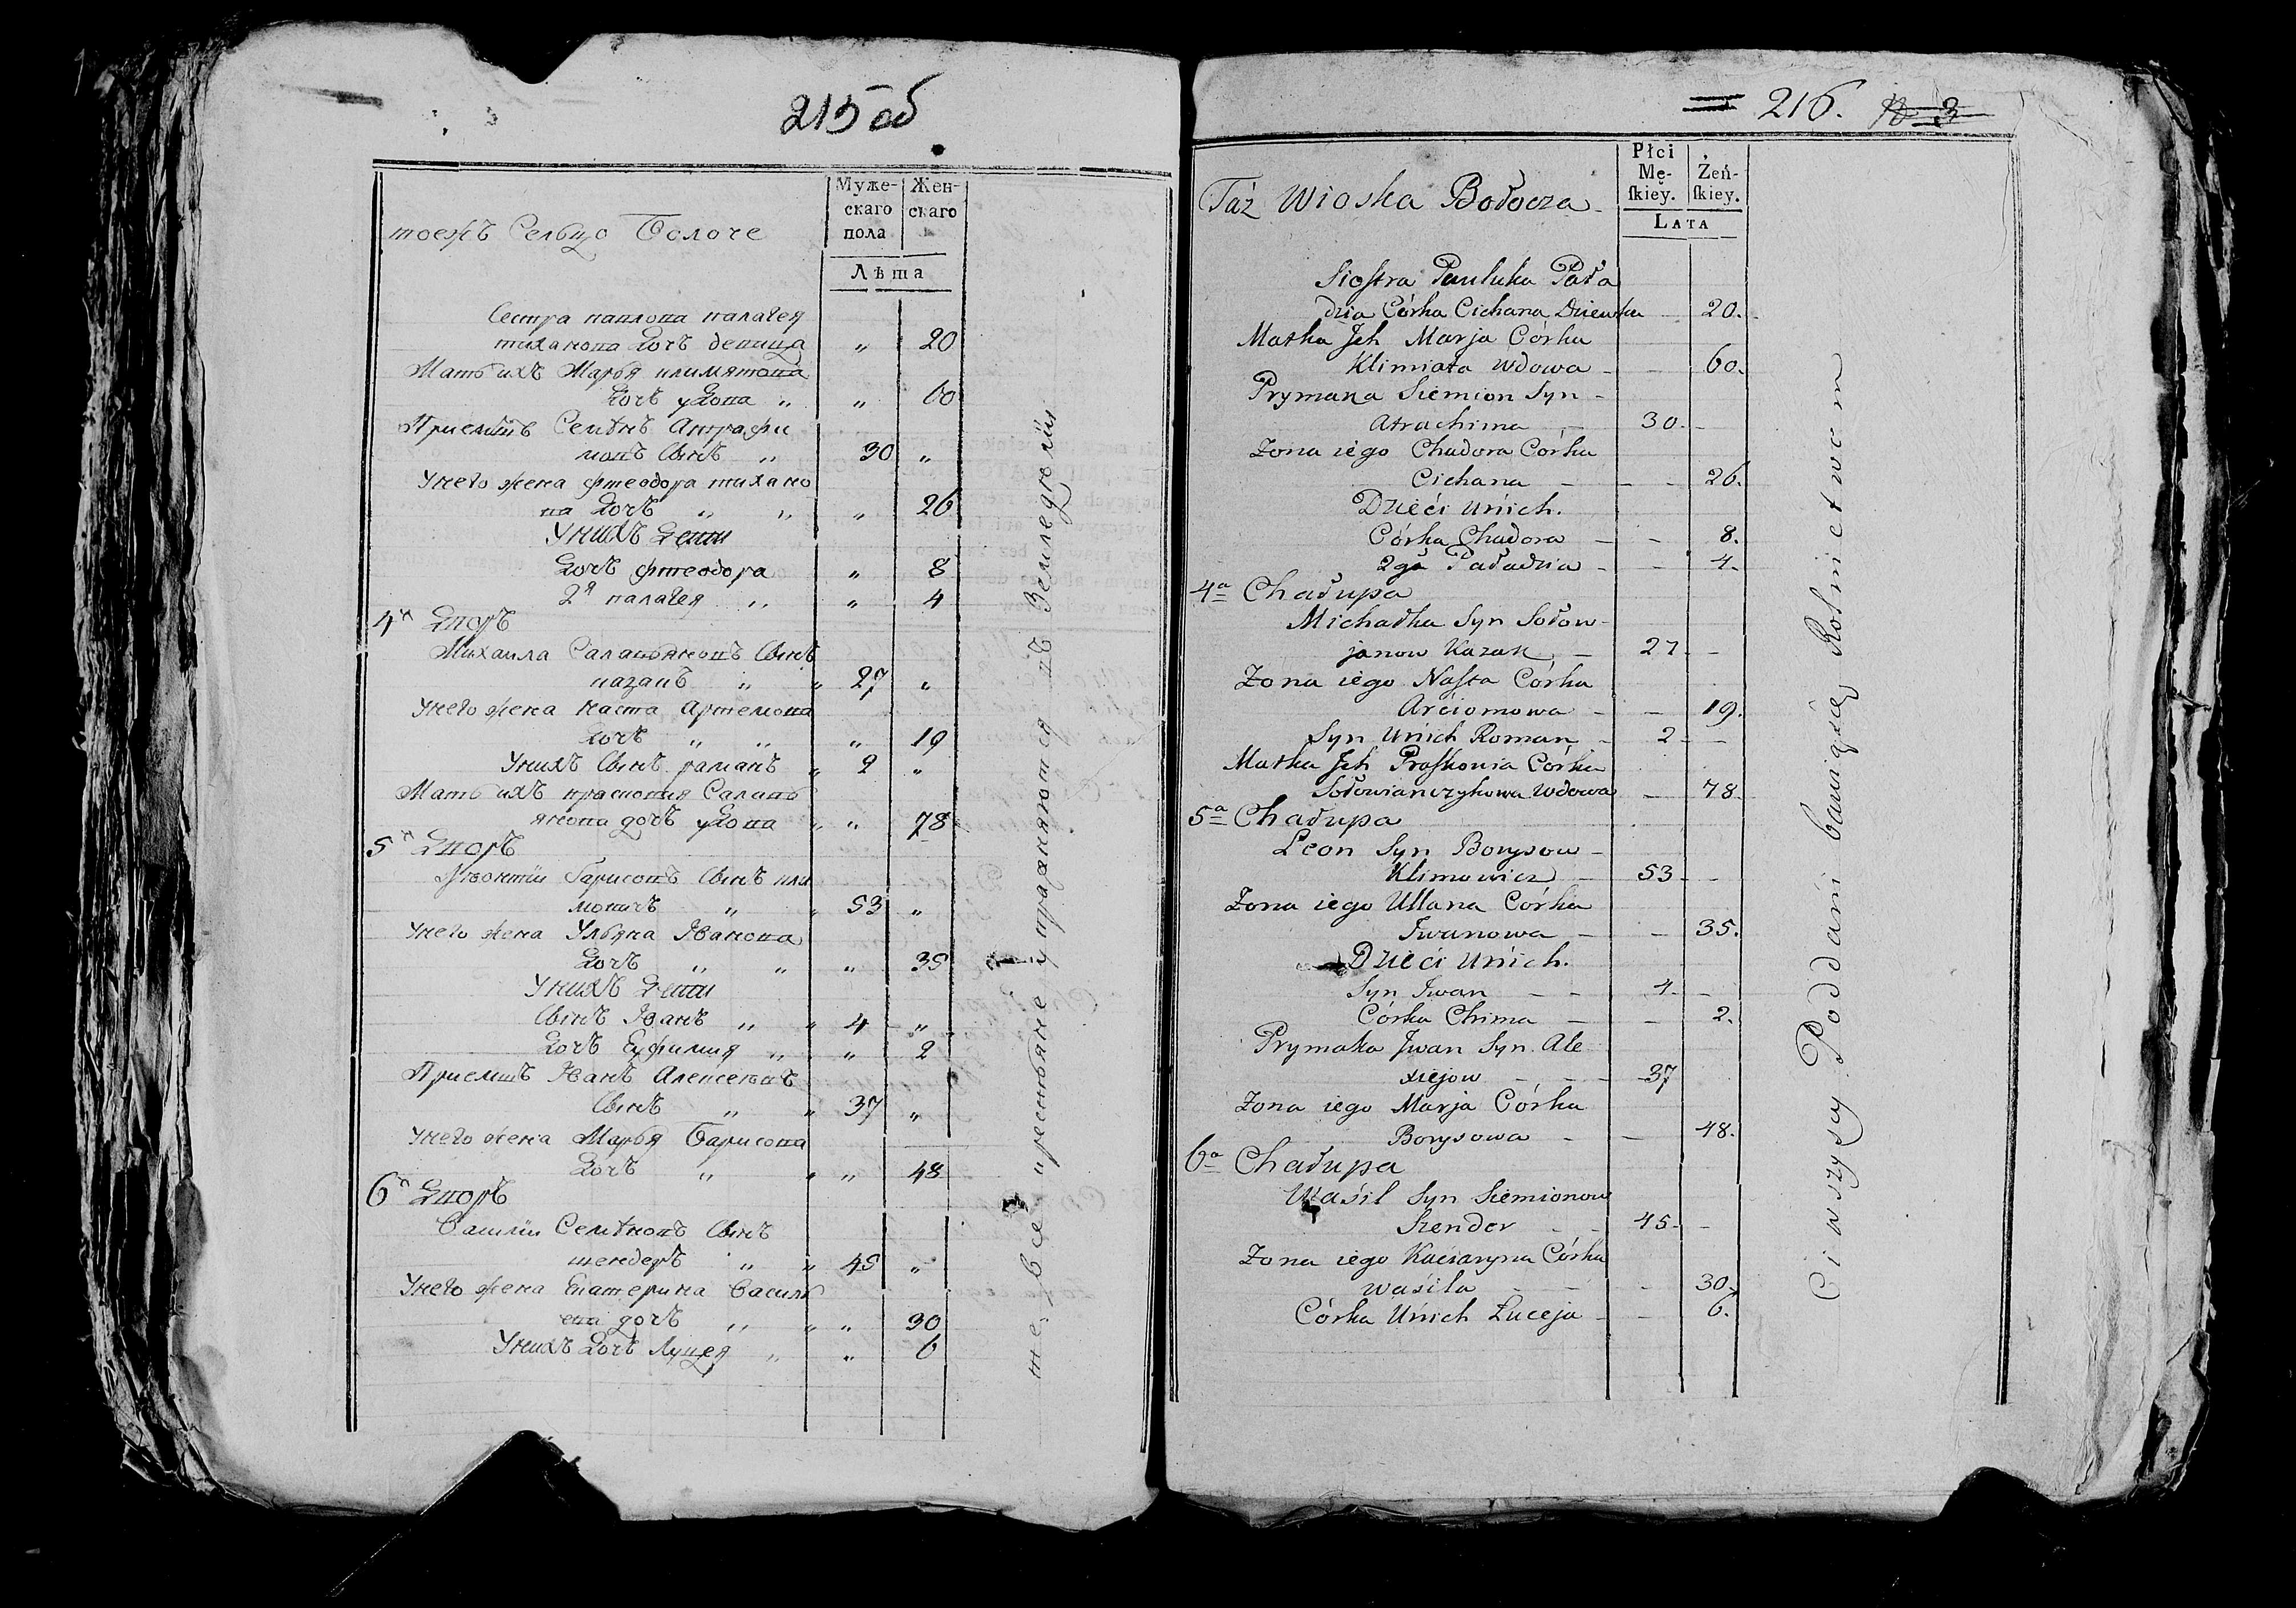 215 об
Муже-
скаго
пола
Жен-
скаго
Лѣта
тоежъ Сельцо Болоче
Сестра павлова палагея
тиханова дочь девица " 20
Мать ихъ Марья климятова
дочь удова " " 60
Приемышъ Семѣнъ Антрафи
мовъ сынъ " 30 "
Унего жена фтеодора тихано
ва дочь " " " 26
Унихъ дети
дочь фтеодора " 8
2я палагея " " 4
4й дворъ
Михаила Салавьяновъ сынъ
казакъ " " 27 "
Унего жена наста Артемова
дочь " " " 19
Унихъ сынъ раманъ " 2 "
Мать ихъ прасковия Салавь
янова дочь удова " " 78
5й дворъ
Леонтій Барисовъ сынъ кли
мовичъ " " 53 "
Унего жена Ульяна Іванова
дочь " " " 35
Унихъ дети
сынъ Іванъ " " 4 "
дочь Еуфимия " " 2
Приемышъ Іванъ Алексеевъ
сынъ " " 37 "
Унего жена Марья Барисова
дочь " " " 48
6й дворъ
Василій Семѣновъ сынъ
шендеръ " " 45 "
Унего жена Екатерина Василь
ева дочь " " " 30
Унихъ дочь Луцея " " 6
те все крестьяне упражняются въ Земледѣліи
216. № 3
Płci
Mę-
skiey.
Żeń-
skiey.
LATA
Taż Wioska Bołocza
Siostra Pauluka Pała
dzia Córka Cichana Dziewka 20.
Matka Jch Marja Córka
Klimiata Wdowa - - 60.
Prymaka Siemion Syn -
Atrachima - 30. -
Żona iego Chadora Córka
Cichana - - - 26.
Dzieci Unich.
Córka Chadora - - 8.
2ga Paładzia - - 4.
4a Chałupa
Michałka Syn Sołow-
janow Kazak - 27 - -
Żona iego Nasta Córka
Arciomowa - - 19.
Syn Unich Roman - 2 - -
Matka Jch Praskowia Córka
Sołowianczykowa Wdowa - 78.
5a Chałupa
Leon Syn Borysow -
Klimowicz - 53 - -
Żona iego Ullana Córka
Jwanowa - - 35.
Dzieci Unich.
Syn Jwan - - 4. -
Córka Chima - - 2.
Prymaka Jwan Syn Ale
xiejow - - - 37
Żona iego Marja Córka
Borysowa - - 48.
6a Chałupa
Wasil Syn Siemionow
Szender - - 45. -
Żona iego Kaciaryna Córka
Wasila - - - 30.
Córka Unich Łuceja - - 6.
Ciwszyscy Poddani bawiąsię Rolnictwem